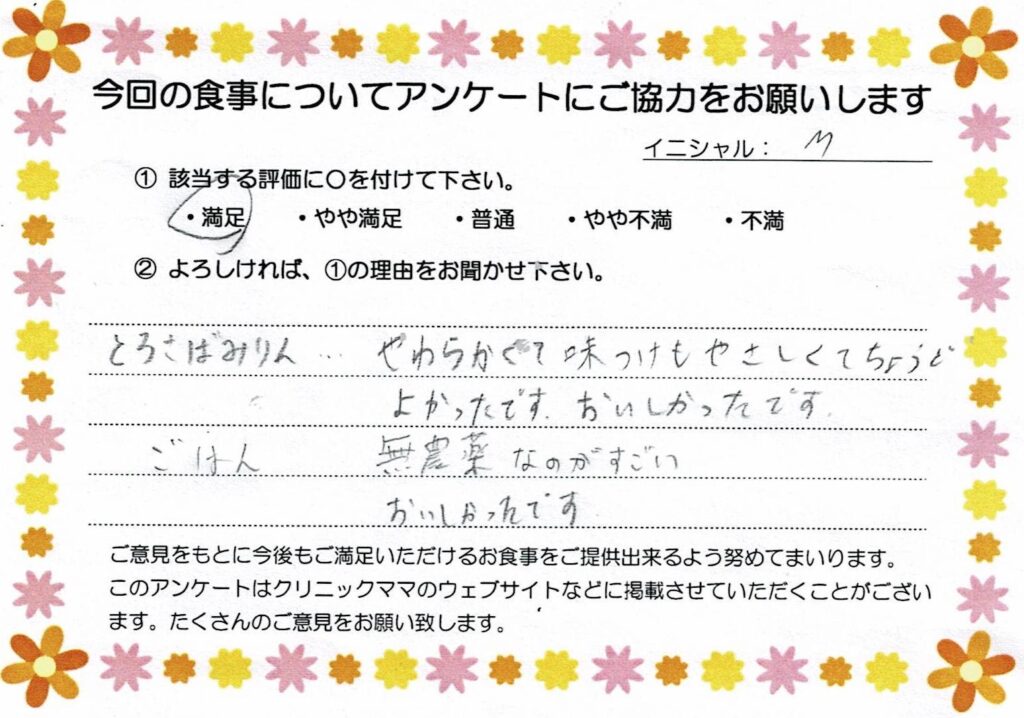 今回の食事についてアンケートにご協力をお願いします
イニシャル： M
① 該当する評価に〇を付けて下さい。
・満足 ・やや満足 ・普通 ・やや不満 ・不満
② よろしければ、①の理由をお聞かせ下さい。
とろさばみりん … やわらかくて 味つけもやさしくてちょうど
よかったです。おいしかったです。
ごはん 無農薬なのがすごい
おいしかったです
ご意見をもとに今後もご満足いただけるお食事をご提供出来るよう努めてまいります。
このアンケートはクリニックママのウェブサイトなどに掲載させていただくことがござい
ます。たくさんのご意見をお願い致します。